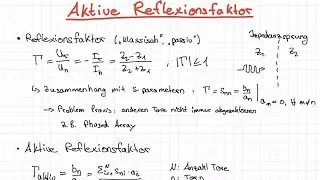 Aktive Reflexionsfaktor
• Reflexionsfaktor ("klassisch", "passiv")
Impedanzsprung
Γ = Ur/Un = - Ir/Ih = Z2-Z1/Z2+Z1 , |Γ| ≤ 1
Z1 Z2
↳ Zusammenhang mit S parametern : Γ = Snn = bn/an | am = 0, ∀ m≠n
→ Problem Praxis: anderen Tore nicht immer abgeschlossen
z.B. Phased Array
• Aktive Reflexionsfaktor
Γaktiv = bn/an = 
N: Anzahl Tore